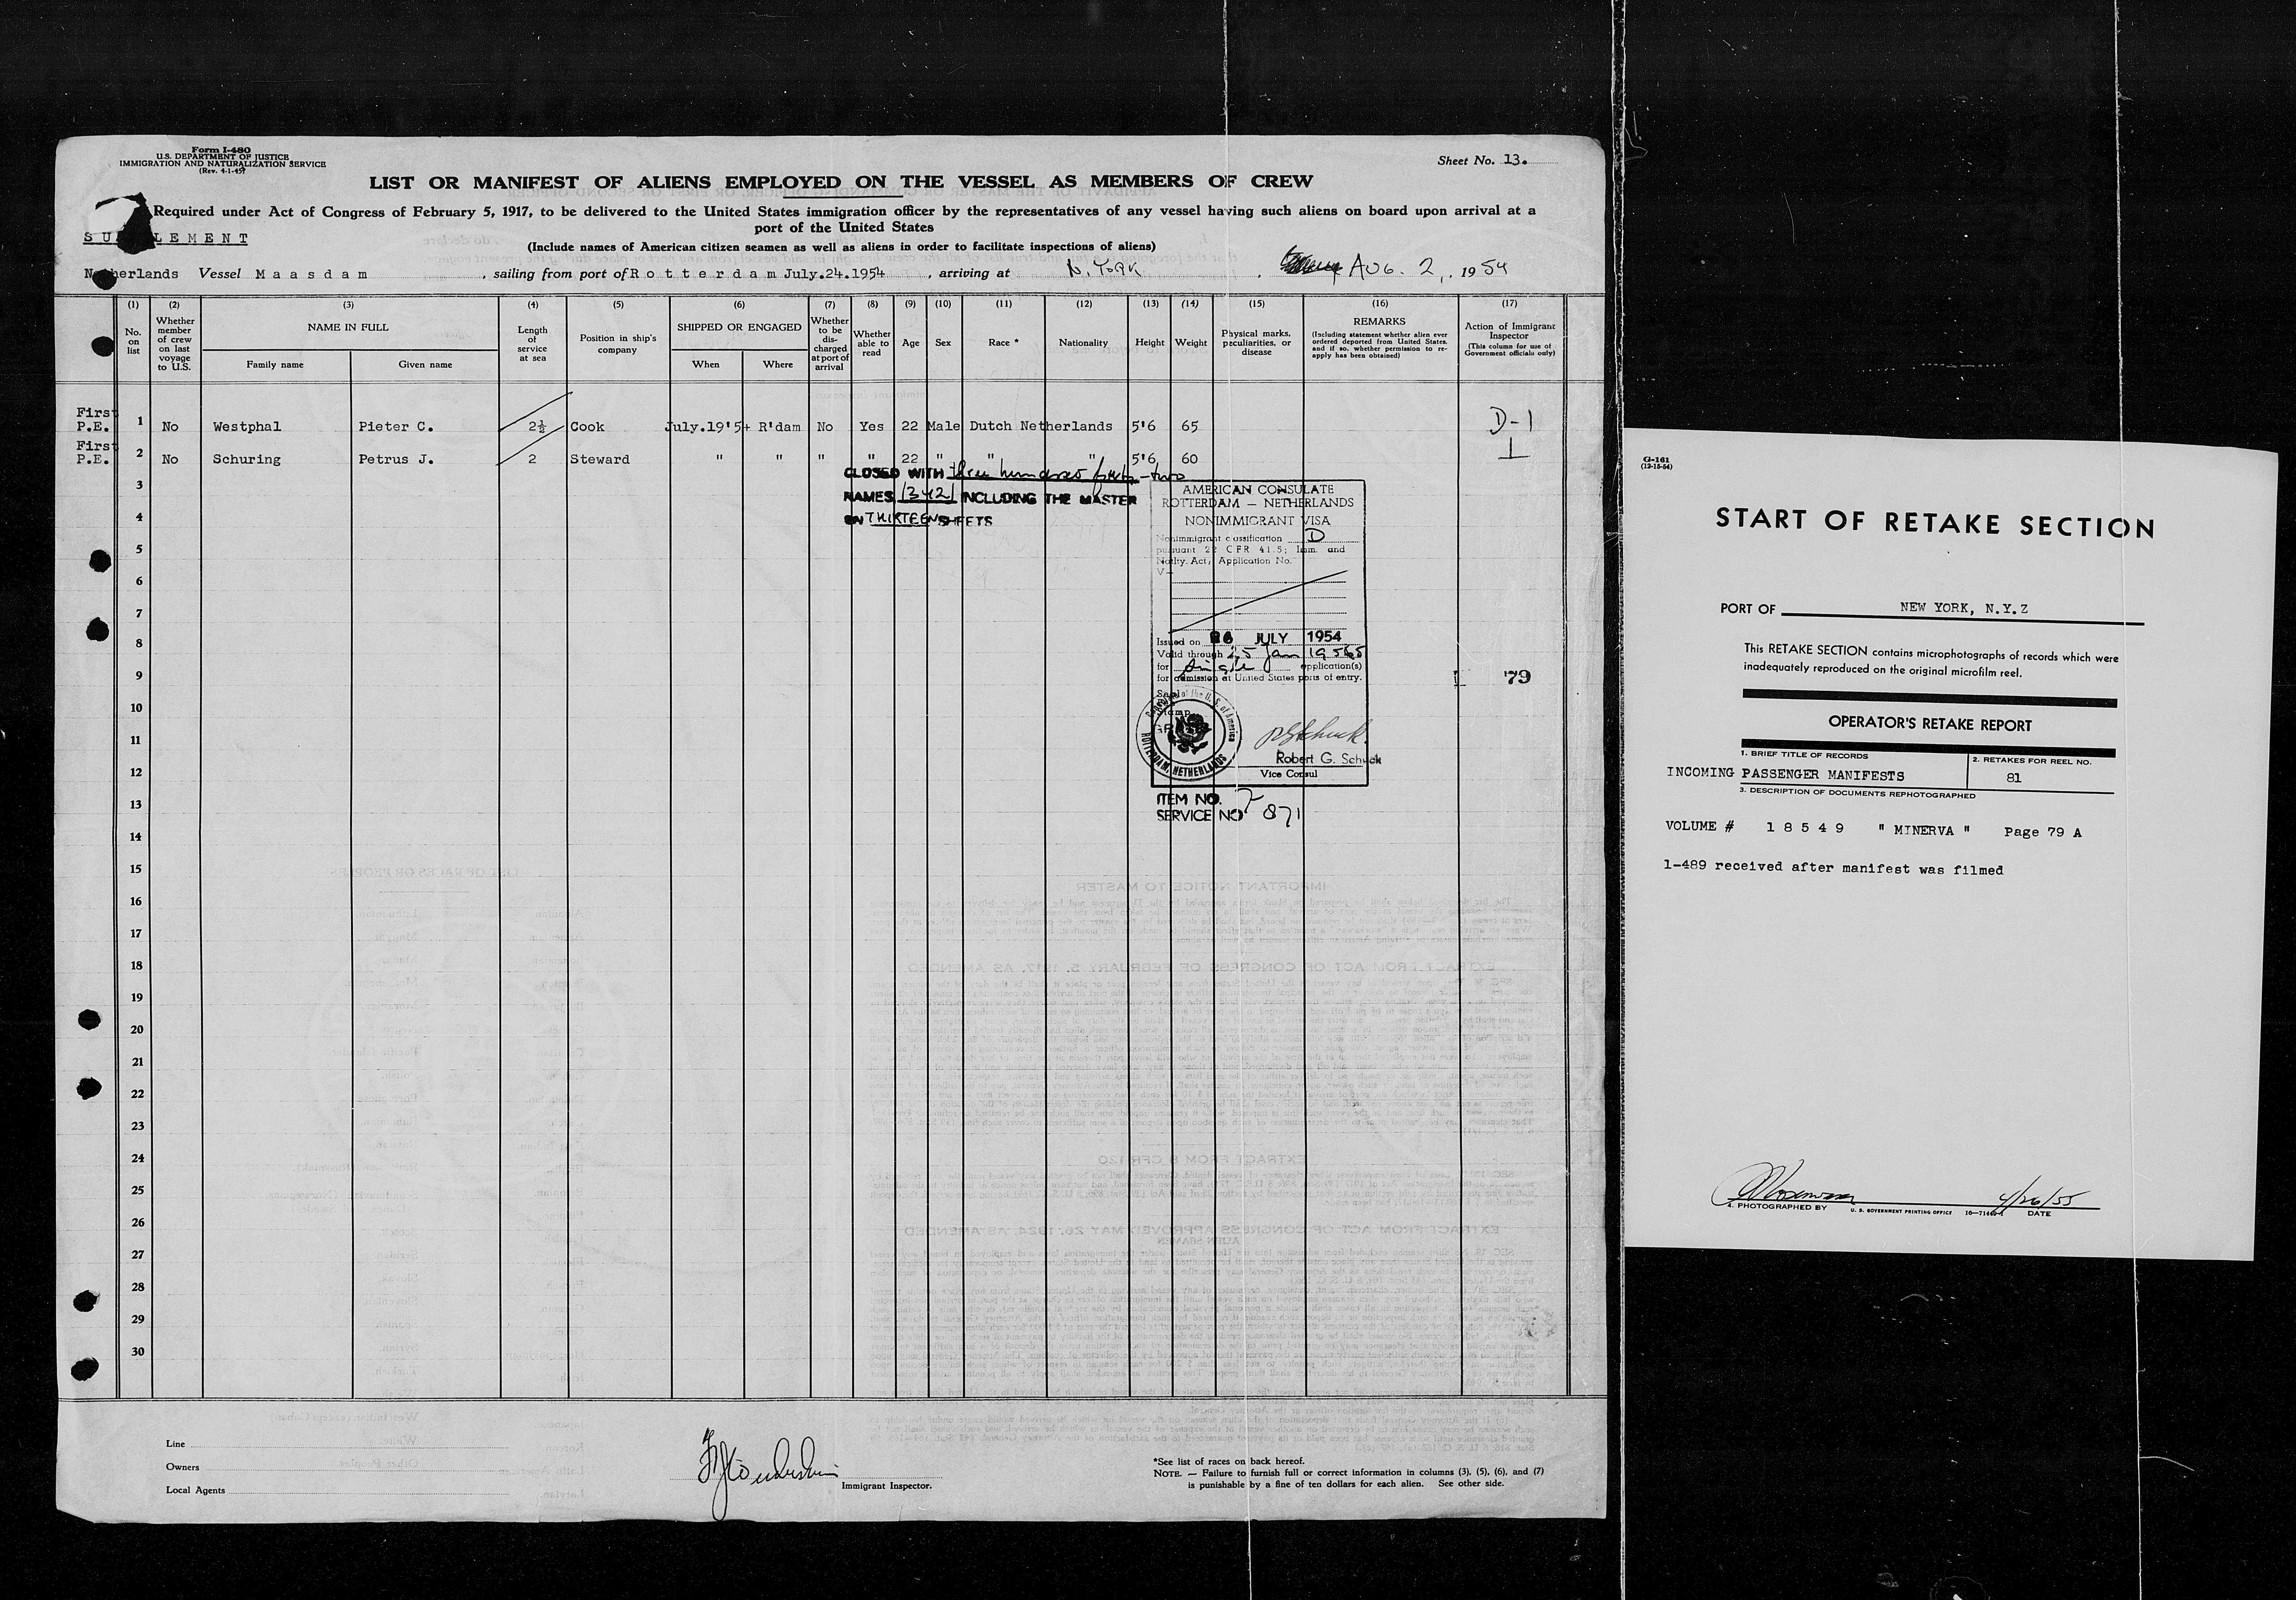 Form I-480
U.S. DEPARTMENT OF JUSTICE
IMMIGRATION AND NATURALIZATION SERVICE
(Rev. 4-1-45)
Sheet No. 13.
LIST OR MANIFEST OF ALIENS EMPLOYED ON THE VESSEL AS MEMBERS OF CREW
Required under Act of Congress of February 5, 1917, to be delivered to the United States immigration officer by the representatives of any vessel having such aliens on board upon arrival at a
port of the United States
SU LEMENT
(Include names of American citizen seamen as well as aliens in order to facilitate inspections of aliens)
Netherlands Vessel Maasdam, sailing from port of Rotterdam July.24.1954, arriving at N. YORK, AUG. 2, 1954
(1) (2) (3) (4) (5) (6) (7) (8) (9) (10) (11) (12) (13) (14) (15) (16) (17)
No. on list
Whether member of crew on last voyage to U.S.
NAME IN FULL
Family name
Given name
Length of service at sea
Position in ship's company
SHIPPED OR ENGAGED
When
Where
Whether to be discharged at port of arrival
Whether able to read
Age
Sex
Race *
Nationality
Height
Weight
Physical marks, peculiarities, or disease
REMARKS
(Including statement whether alien ever ordered deported from United States, and if so, whether permission to reapply has been obtained)
Action of Immigrant Inspector
(This column for use of Government officials only)
First P.E. 1 No Westphal Pieter C. 2½ Cook July.19'54 R'dam No Yes 22 Male Dutch Netherlands 5'6 65 D-1
First P.E. 2 No Schuring Petrus J. 2 Steward " " " " 22 " " " 5'6 60 ⊥
CLOSED WITH three hundred forty-two
NAMES 342 INCLUDING THE MASTER
ON THIRTEEN SHEETS
AMERICAN CONSULATE
ROTTERDAM — NETHERLANDS
NONIMMIGRANT VISA
Nonimmigrant classification D
pursuant 22 CFR 41.5; Imm. and
Natlty. Act; Application No.
V—
Issued on 26 JULY 1954
Valid through 25 Jan 1955
for single application(s)
for admission at United States ports of entry.
Seal
Stamp
ROTTERDAM, NETHERLANDS
Robert G. Schuck
Vice Consul
ITEM NO. 7
SERVICE NO 871
'79
3
4
5
6
7
8
9
10
11
12
13
14
15
16
17
18
19
20
21
22
23
24
25
26
27
28
29
30
Line
Owners
Local Agents
Immigrant Inspector.
*See list of races on back hereof.
NOTE. — Failure to furnish full or correct information in columns (3), (5), (6), and (7)
is punishable by a fine of ten dollars for each alien. See other side.
G-161
(12-15-54)
START OF RETAKE SECTION
PORT OF NEW YORK, N.Y.Z
This RETAKE SECTION contains microphotographs of records which were
inadequately reproduced on the original microfilm reel.
OPERATOR'S RETAKE REPORT
1. BRIEF TITLE OF RECORDS
INCOMING PASSENGER MANIFESTS
2. RETAKES FOR REEL NO.
81
3. DESCRIPTION OF DOCUMENTS REPHOTOGRAPHED
VOLUME # 18549 " MINERVA " Page 79 A
1-489 received after manifest was filmed
4/26/55
4. PHOTOGRAPHED BY
U. S. GOVERNMENT PRINTING OFFICE
DATE